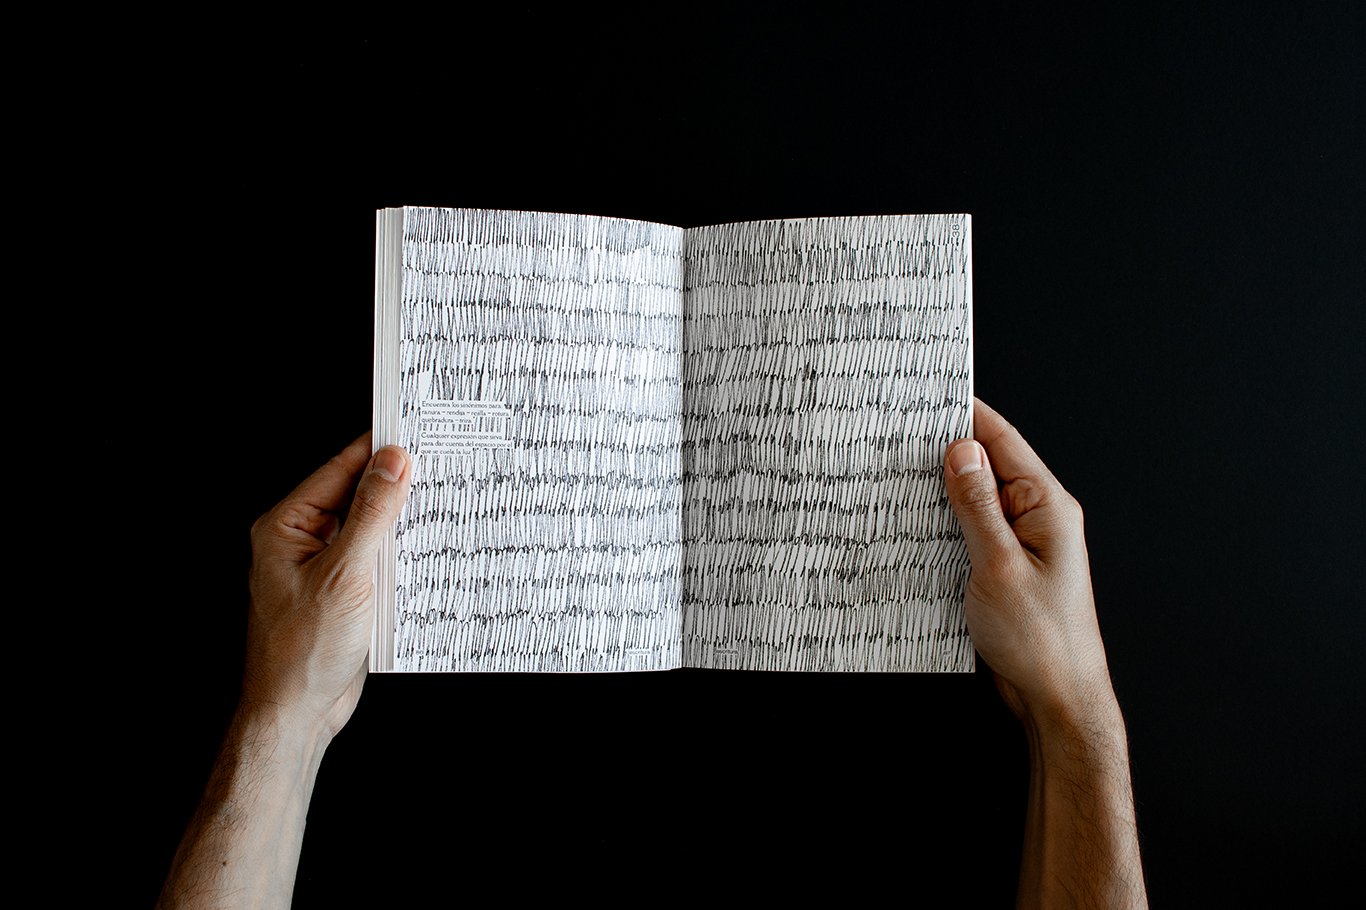 Encuentra los sinónimos para:
ranura – rendija – rejilla – rotura
quebradura – triza
Cualquier expresión que sirva
para dar cuenta del espacio por el
que se cuela la luz
38